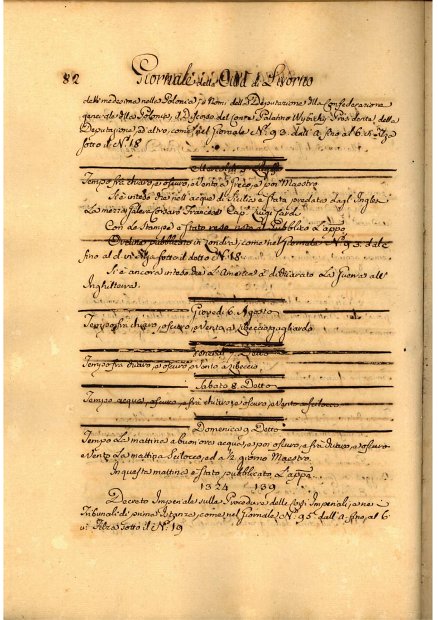 82 Giornale della Città di Livorno
dall'medesima nella Polonia, i Nomi della Deputazione alla Confederazione
generale della Polonia, il Discorso del Conte Palatino Wybicki, Presidente della
Deputazione, ed altro, come nel Giornale N.º 93. dall' a fino al 6
sotto il N.º 18
Mercoledì 5
Tempo frà chiaro, e oscuro, e Vento a Greco, e poi Maestro
Si è inteso che nell'acque di Sicilia è stata predato dagl'Inglesi
La Francese Cap. Luigi
Con le Stampe è stato reso noto al Pubblico L'appo
Ordine pubblicato in Londra, come nel Giornale N.º 93. dal e
fino al d. sotto d.º N.º 18.
Si è ancora inteso che L'America à dichiarato La Guerra all'
Inghilterra.
Giovedì 6. Agosto
Tempo frà chiaro, e oscuro, e Vento a Libeccio gagliardo
Venerdì 7. Detto
Tempo frà chiaro, e oscuro, e Vento a Libeccio
Sabato 8. Detto
Tempo acqua, e oscuro, e frà chiaro, e oscuro, e Vento a Scilocco
Domenica 9. Detto
Tempo La mattina a buon'ora acqua, e poi oscuro, e frà chiaro, e oscuro
e Vento La mattina Scilocco, ed a ½ giorno Maestro.
In questa mattina è stato pubblicato L'appo...
1324 139
Decreto Imperiale sulla Procedura delle Imperiali, a ne i
Tribunali di prima istanza, come nel Giornale N.º 95. dall' a fino, al 6
sotto il N.º 19